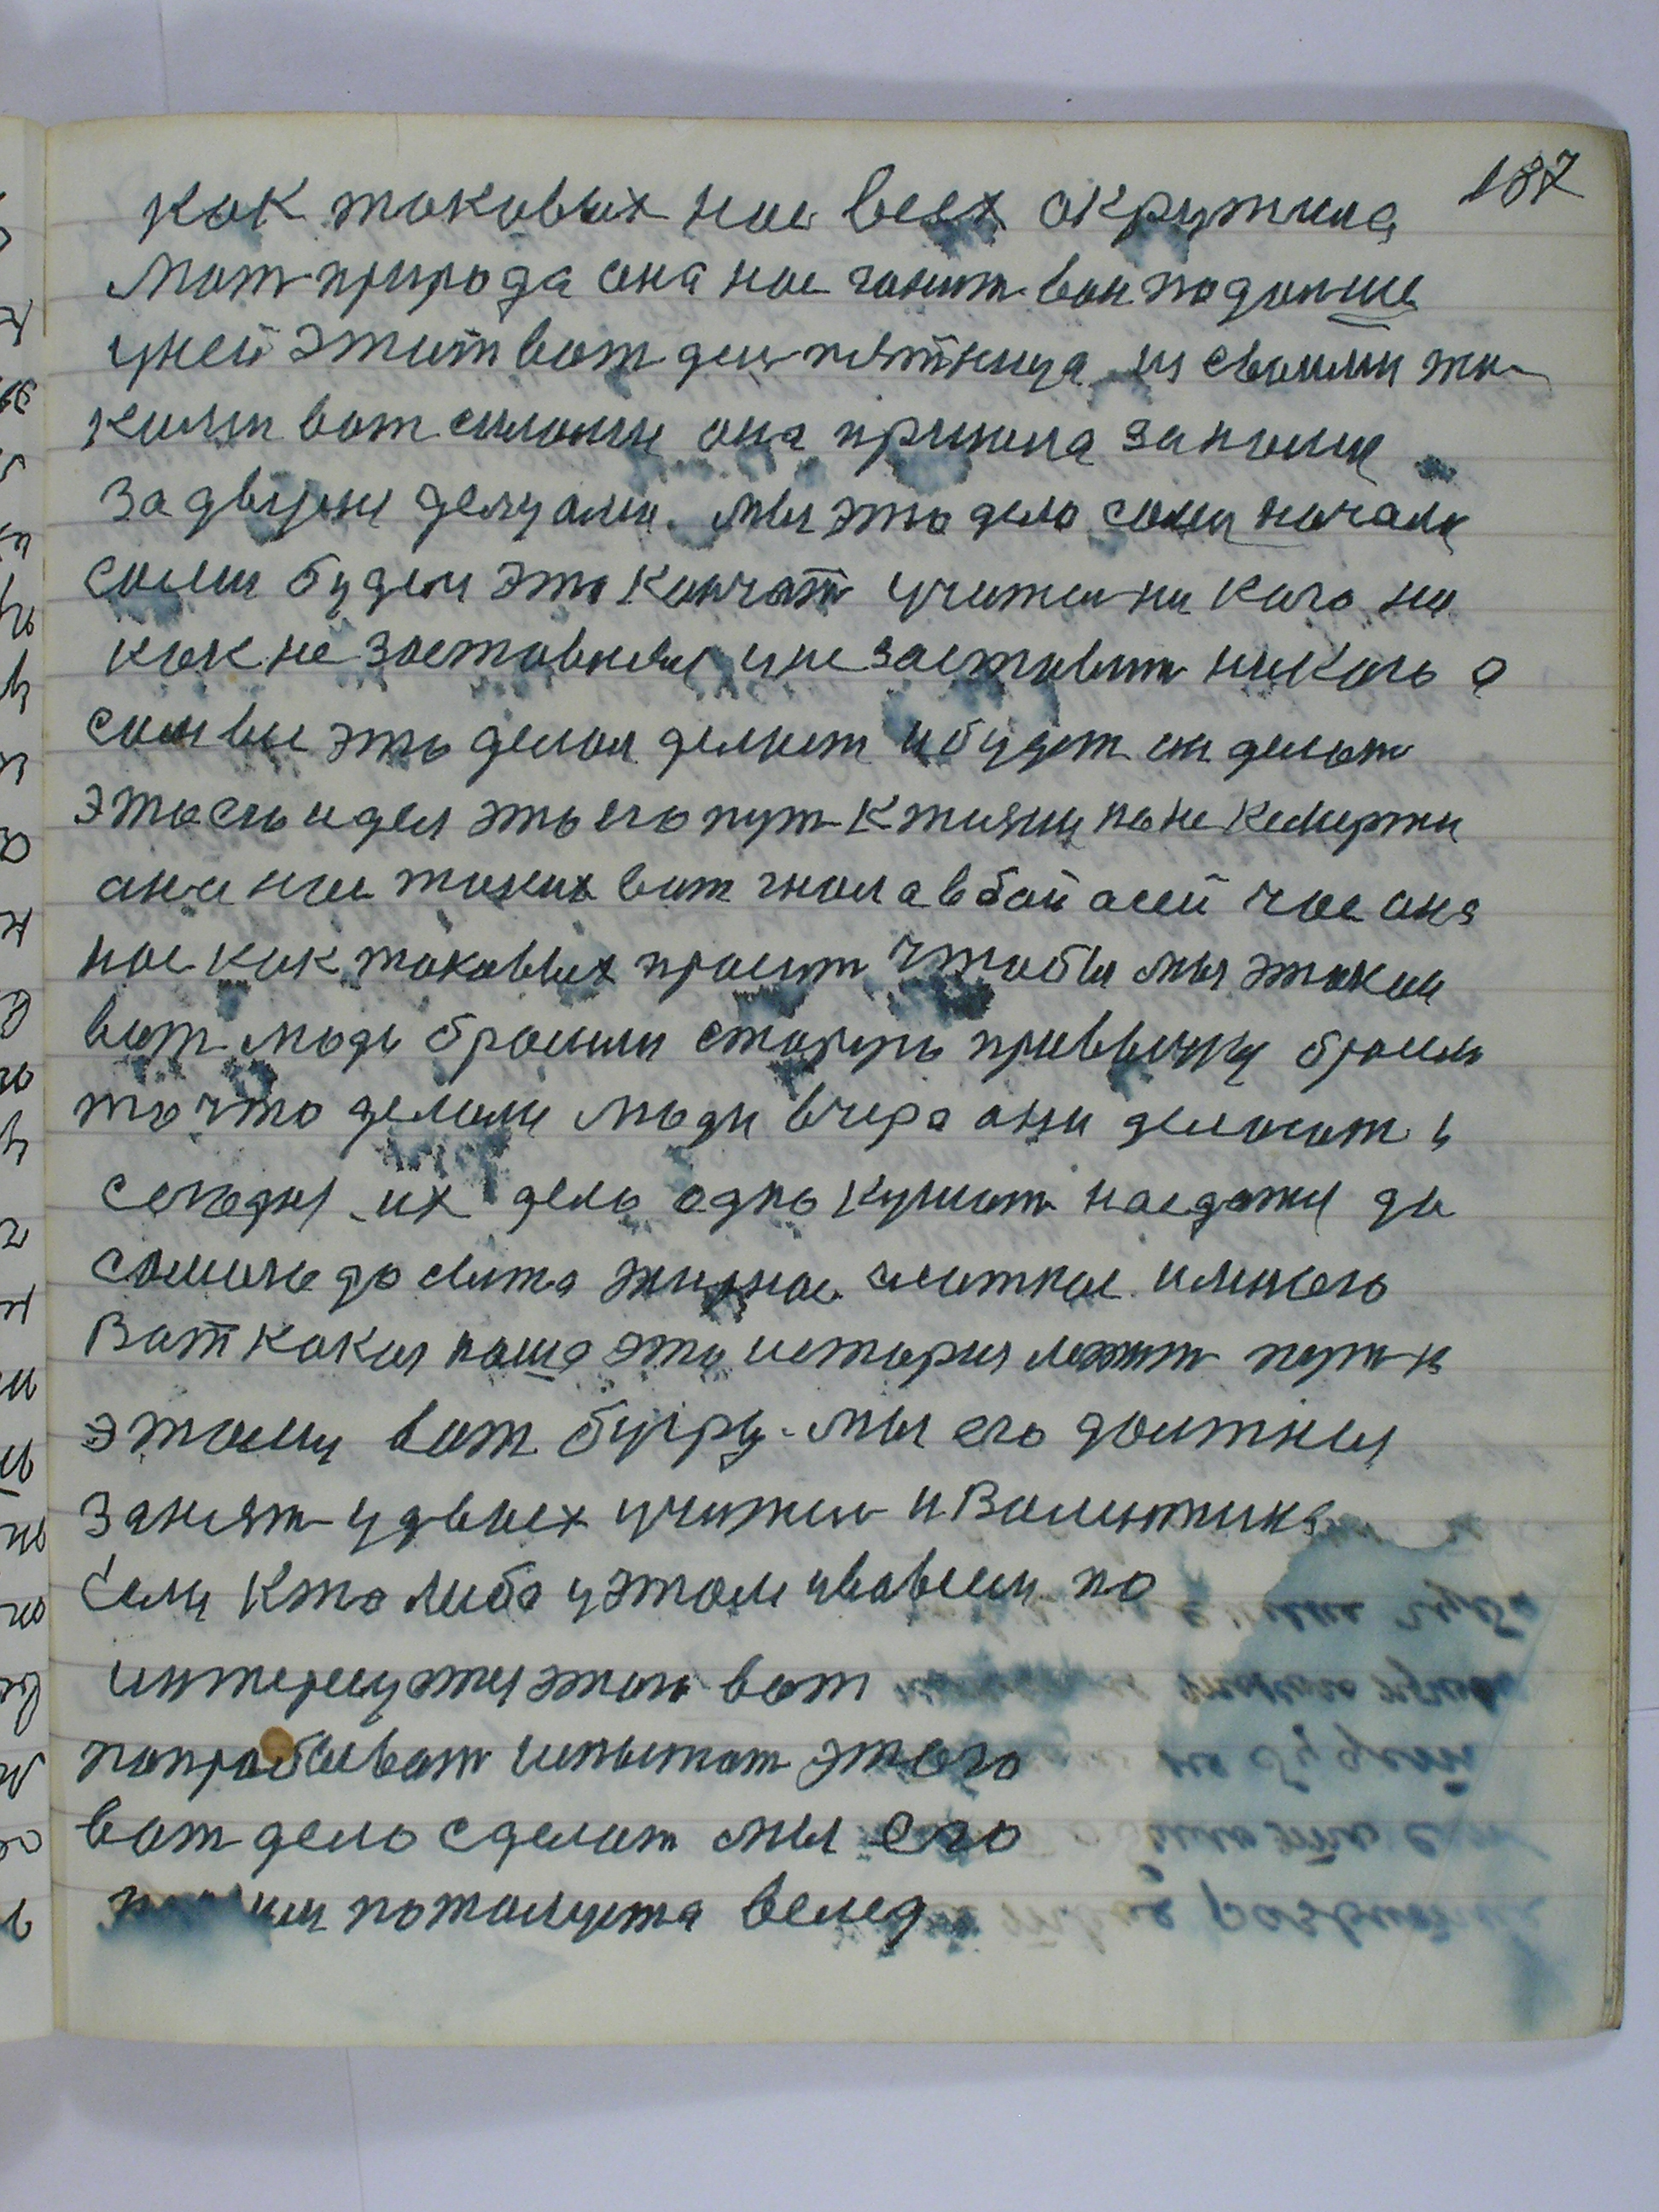 187
как таковых нас всех окружила
мат природа она нас гонит вон подальше
уней этит вот ден пятница из своими та-
кими вот силами она пришла за ними
за двумя делами. мы это дело сами начали
сами будем это кончат учител ни кого ни
как не заставлял и не заставит никого а
сам все это делал делает и будет он делат
это его идея это его пут к жизни но не к смерти
она нас таких вот гнала в бой а сей час она
нас как таковых просит чтобы мы такие
вот люди бросили старую привычку бросил
то что делали люди вчера они делают и
сегодня их дело одно кушат наедатся до
самого досыта жирное слаткое и много
Вот какая наша эта история лежит пути к
этому вот бугру. мы его должны
занят удвоих учител и Валентина
Если кто либо у этом и вовсем по
интересуется этого вот
попробыват испытат этого
вот дело сделат мы его
пожалуста вслед